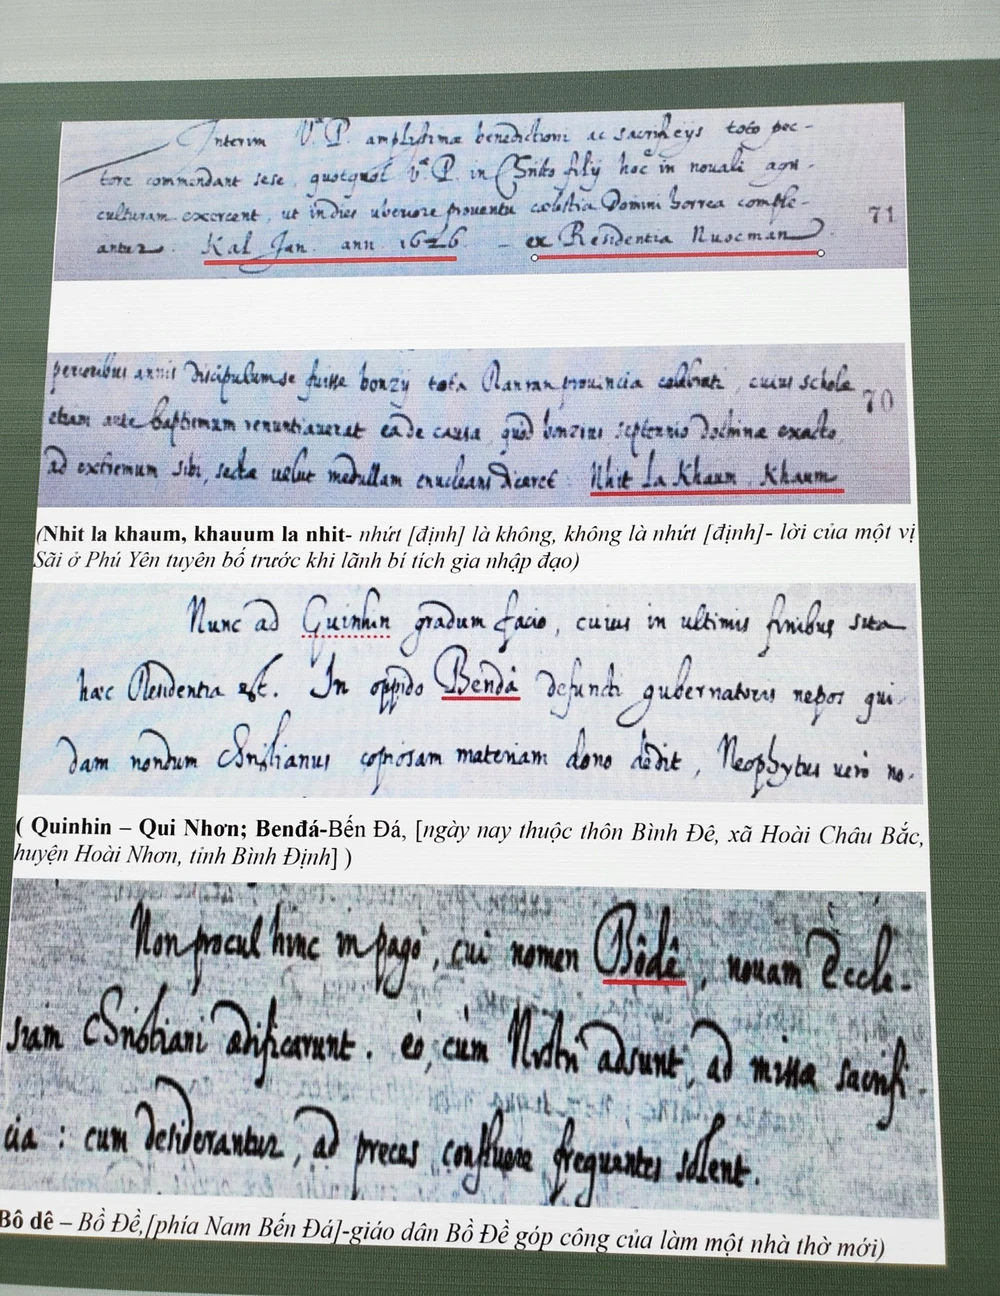 Interim V.ae P. amplissimae benedictioni ac sacrificijs toto pec-
tore commendant sese, quotquot V.ae P. in Christo filij hoc in nouali agri-
culturam exercent, ut indies uberiore prouentu caelestia Domini horrea comple-
antur. Kal Jan. ann. 1626. – ex Residentia Nuocman.
71
annis discipulum se fuisse bonzij tota Ranran prouincia celebrati, cuius schole
70
etiam ante baptismum renuntiauerat ea de causa, quod bonzius septennio doctrinae exacto,
ad extremum sibi, sectae uelut medullam enucleans diceret Nhit la Khaum, Khaum
(Nhit la khaum, khauum la nhit- nhứt [định] là không, không là nhứt [định]- lời của một vị
Sãi ở Phú Yên tuyên bố trước khi lãnh bí tích gia nhập đạo)
Nunc ad Quinhin gradum facio, cuius in ultimis finibus sita
haec Residentia est. In oppido Bendá defuncti gubernatoris nepos qui-
dam nondum Christianus copiosam materiam dono dedit, Neophytus uero no-
( Quinhin – Qui Nhơn; Benđá-Bến Đá, [ngày nay thuộc thôn Bình Đê, xã Hoài Châu Bắc,
huyện Hoài Nhơn, tỉnh Bình Định] )
Non procul hinc in pago, cui nomen Bôdê, nouam Eccle-
siam Christiani aedificarunt. eo, cum Nostri adsunt, ad missae sacrifi-
cia: cum desiderantur, ad preces confluere frequentes solent.
Bô dê – Bồ Đề,[phía Nam Bến Đá]-giáo dân Bồ Đề góp công của làm một nhà thờ mới)